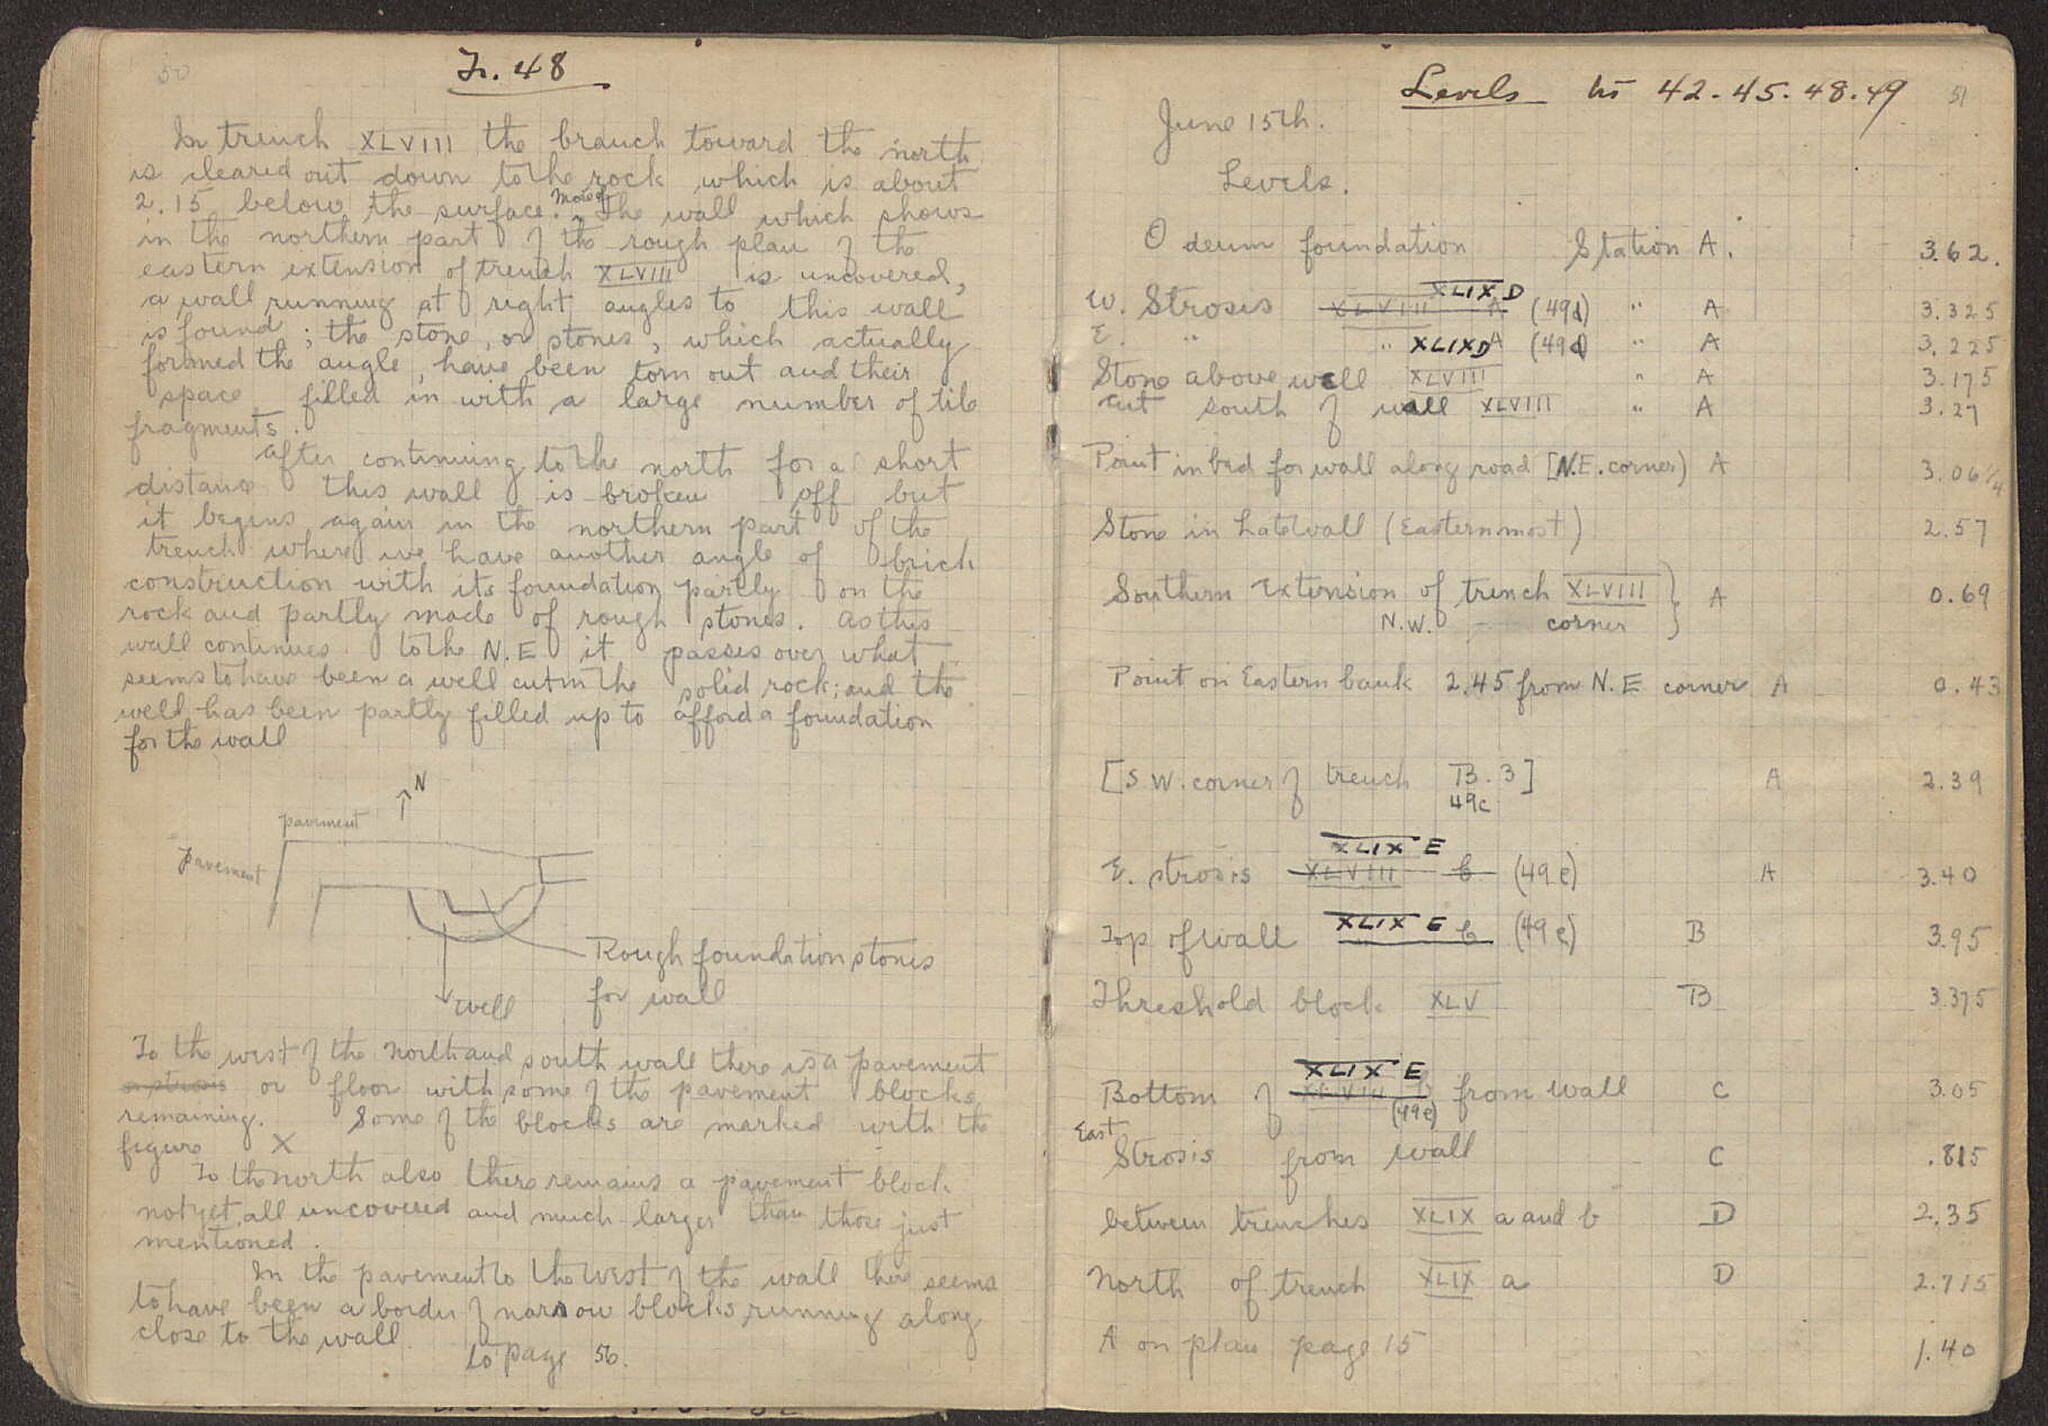 50
Tr. 48
In trench XLVIII the branch toward the north
is cleared out down to the rock which is about
2.15 below the surface. More of The wall which shows
in the northern part of the rough plan of the
eastern extension of trench XLVIII is uncovered,
a wall running at right angles to this wall
is found; the stone, or stones, which actually
formed the angle, have been torn out and their
space filled in with a large number of tile
fragments.
After continuing to the north for a short
distance this wall is broken off but
it begins again in the northern part of the
trench where we have another angle of brick
construction with its foundation partly on the
rock and partly made of rough stones. As this
wall continues to the N.E it passes over what
seems to have been a well cut in the solid rock; and the
well has been partly filled up to afford a foundation
for the wall
N
pavement
pavement
Rough foundation stones
for wall
well
To the west of the north and south wall there is a pavement
or floor with some of the pavement blocks
remaining. Some of the blocks are marked with the
figure X
To the north also there remains a pavement block
not yet all uncovered and much larger than those just
mentioned.
In the pavement to the west of the wall there seems
to have been a border of narrow blocks running along
close to the wall.
to page 56.
Levels 42-45-48-49
51
June 15th.
Levels.
Odeum foundation Station A. 3.62.
W. Strosis XLVIII A XLIX D (49d) " A 3.325
E. " " A XLIX D (49d) " A 3.225
Stone above well XLVIII " A 3.175
Cut south of wall XLVIII " A 3.27
Point in bed for wall along road [N.E. corner) A 3.06 1/4
Stone in Late Wall (Easternmost) 2.57
Southern Extension of trench XLVIII } A 0.69
N.W. corner
Point on Eastern bank 2.45 from N.E corner A 0.43
[S W. corner of trench B.3] A 2.39
49c
E. strosis XLVIII b XLIX E (49e) A 3.40
Top of wall XLIX E b (49e) B 3.95
Threshold block XLV B 3.375
Bottom of XLVIII b XLIX E (49e) from wall C 3.05
East Strosis from wall C .815
between trenches XLIX a and b D 2.35
North of trench XLIX a D 2.715
A on plan page 15 1.40